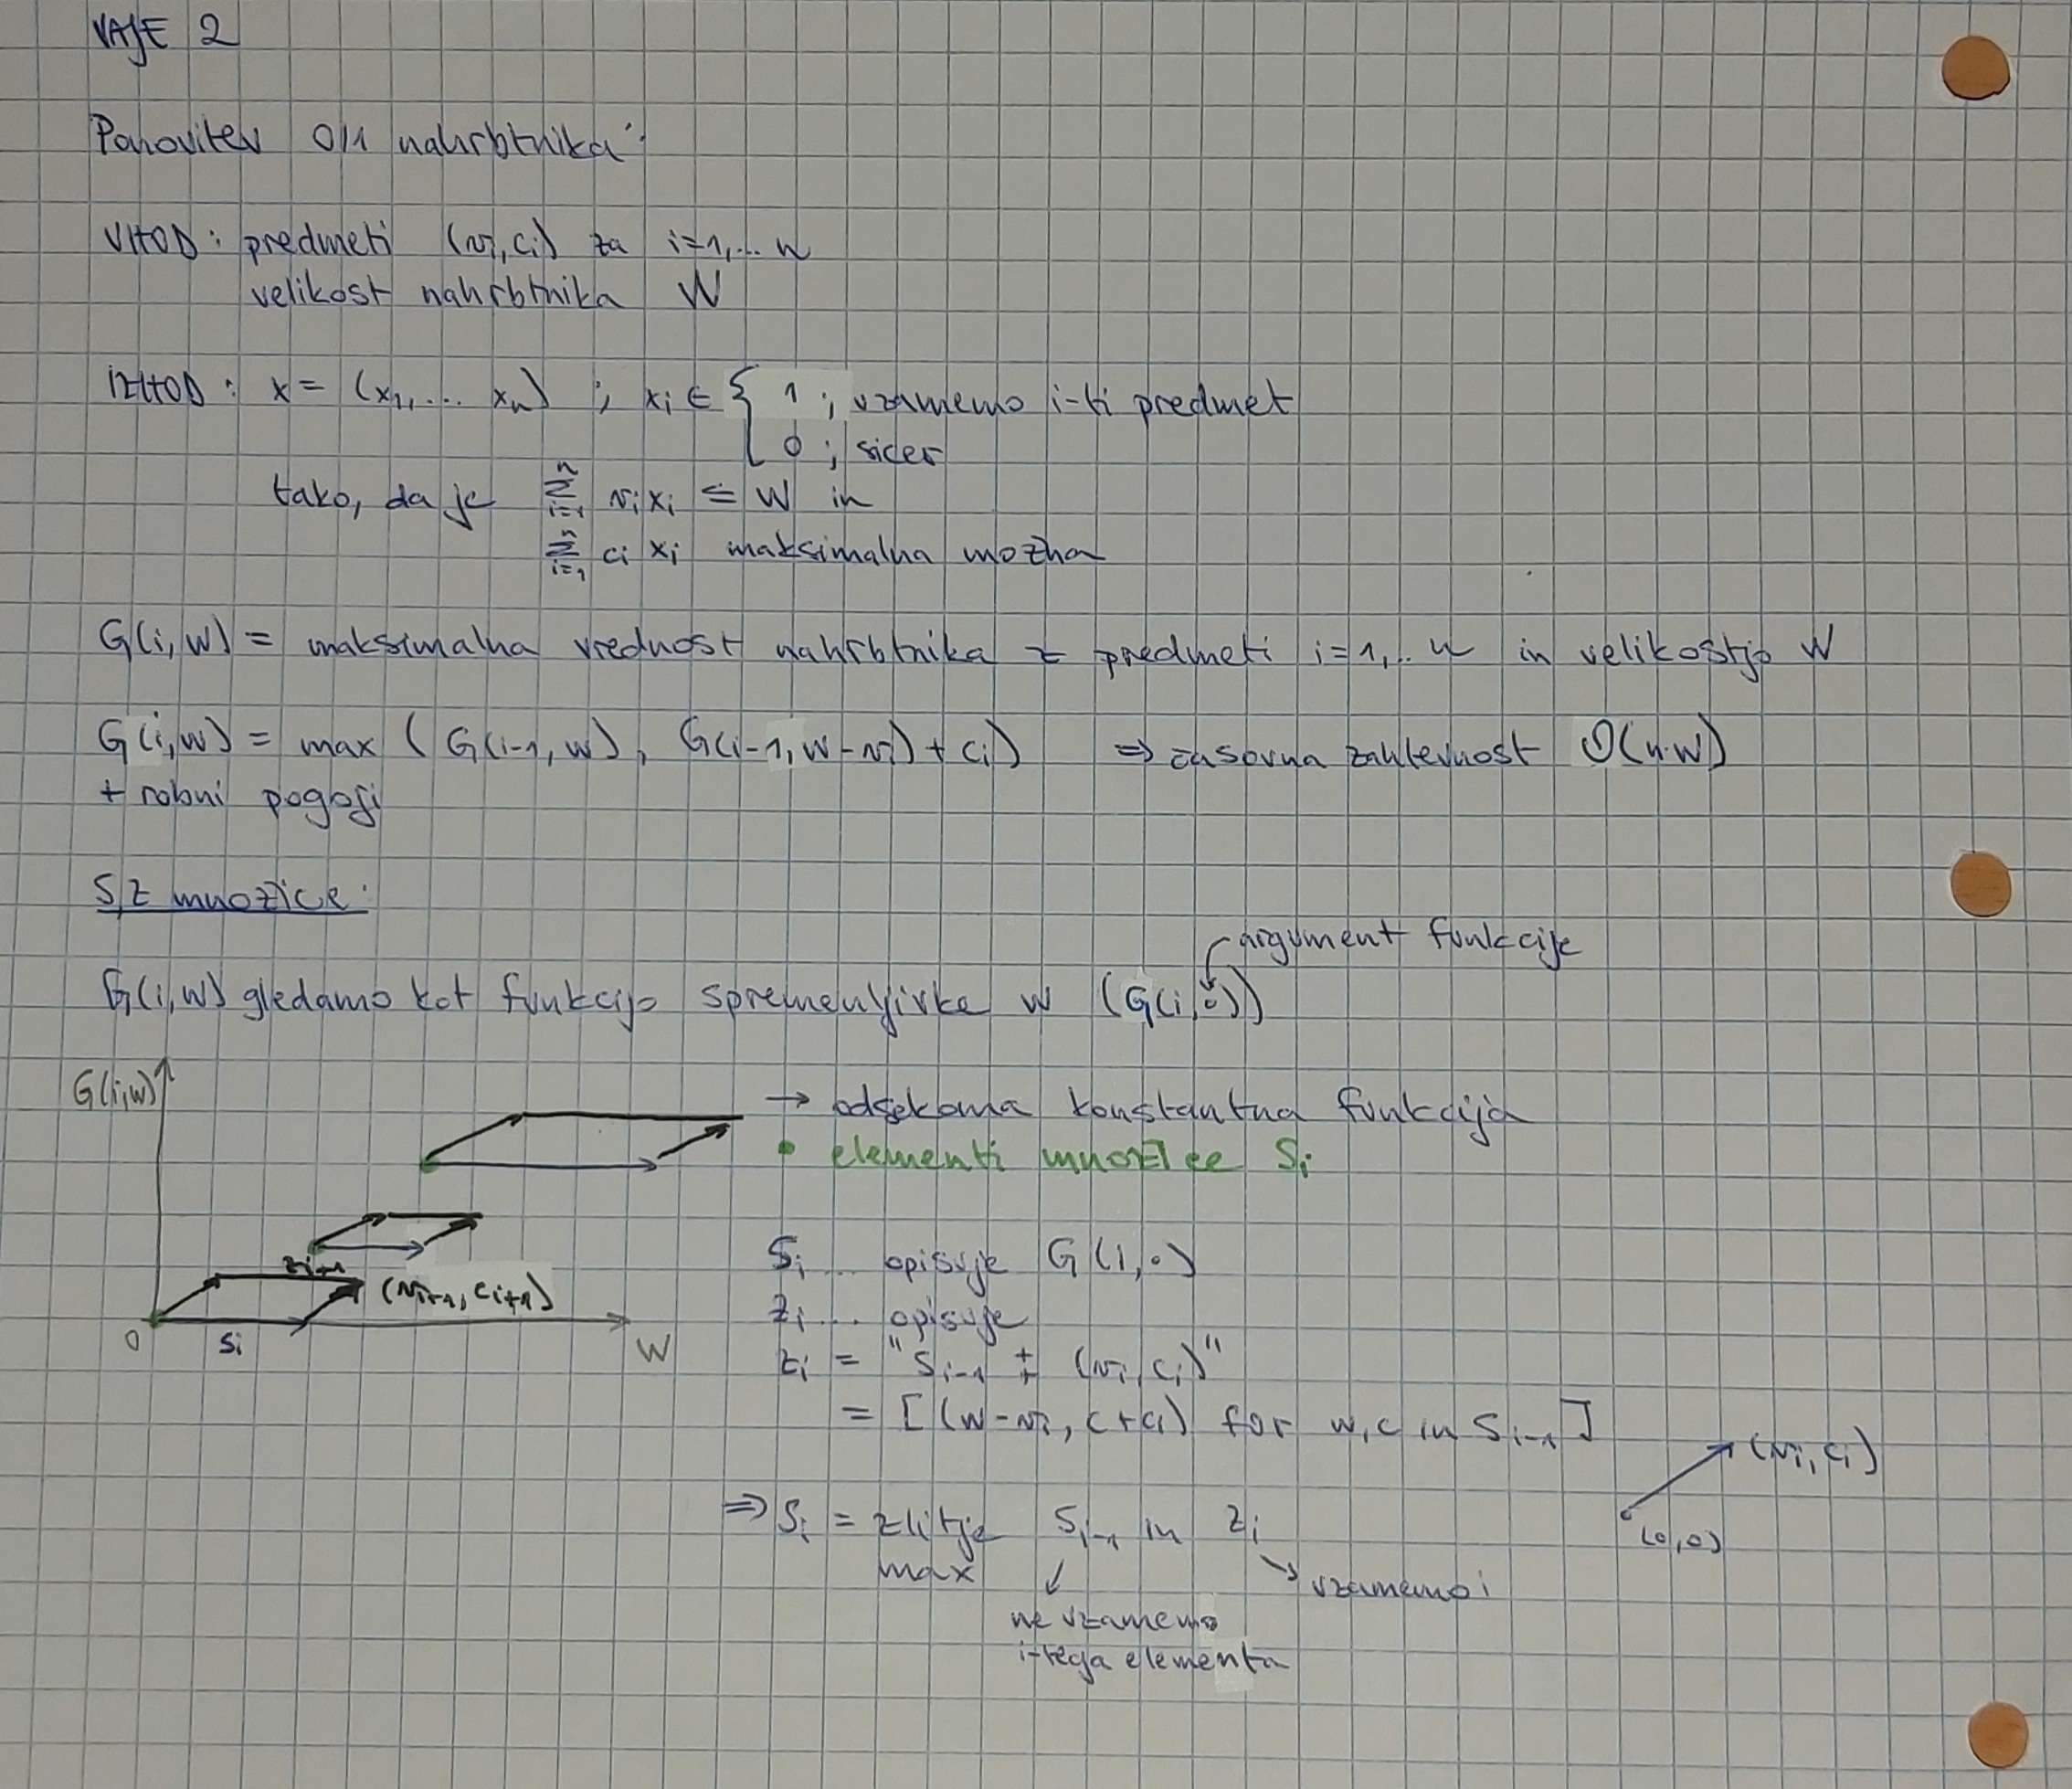 VAJE 2
Ponovitev 0/1 nahrbtnika:
VHOD: predmeti (vi, ci) za i=1,... n
velikost nahrbtnika W
IZHOD: x = (x1,... xn) ; xi ∈ { 1 ; vzamemo i-ti predmet
0 ; sicer
tako, da je ∑_{i=1}^{n} vi xi ≤ W in
∑_{i=1}^{n} ci xi maksimalna možna
G(i, w) = maksimalna vrednost nahrbtnika z predmeti i=1,.. n in velikostjo W
G(i,w) = max (G(i-1, w), G(i-1, w-vi) + ci) => časovna zahtevnost O(n·W)
+ robni pogoji
S,Z množice:
argument funkcije
G(i,w) gledamo kot funkcijo spremenljivke w (G(i,·))
G(i,w)
→ odsekoma konstantna funkcija
• elementi množice Si
Zi+1
(vi+1, ci+1)
0 Si W
Si ... opisuje G(i,·)
Zi ... opisuje
Zi = "Si-1 + (vi, ci)"
= [(w-vi, c+ci) for w,c in Si-1]
(vi, ci)
(0,0)
=> Si = zlitje Si-1 in Zi
max ↓ ↘ vzamemo i
ne vzamemo
i-tega elementa